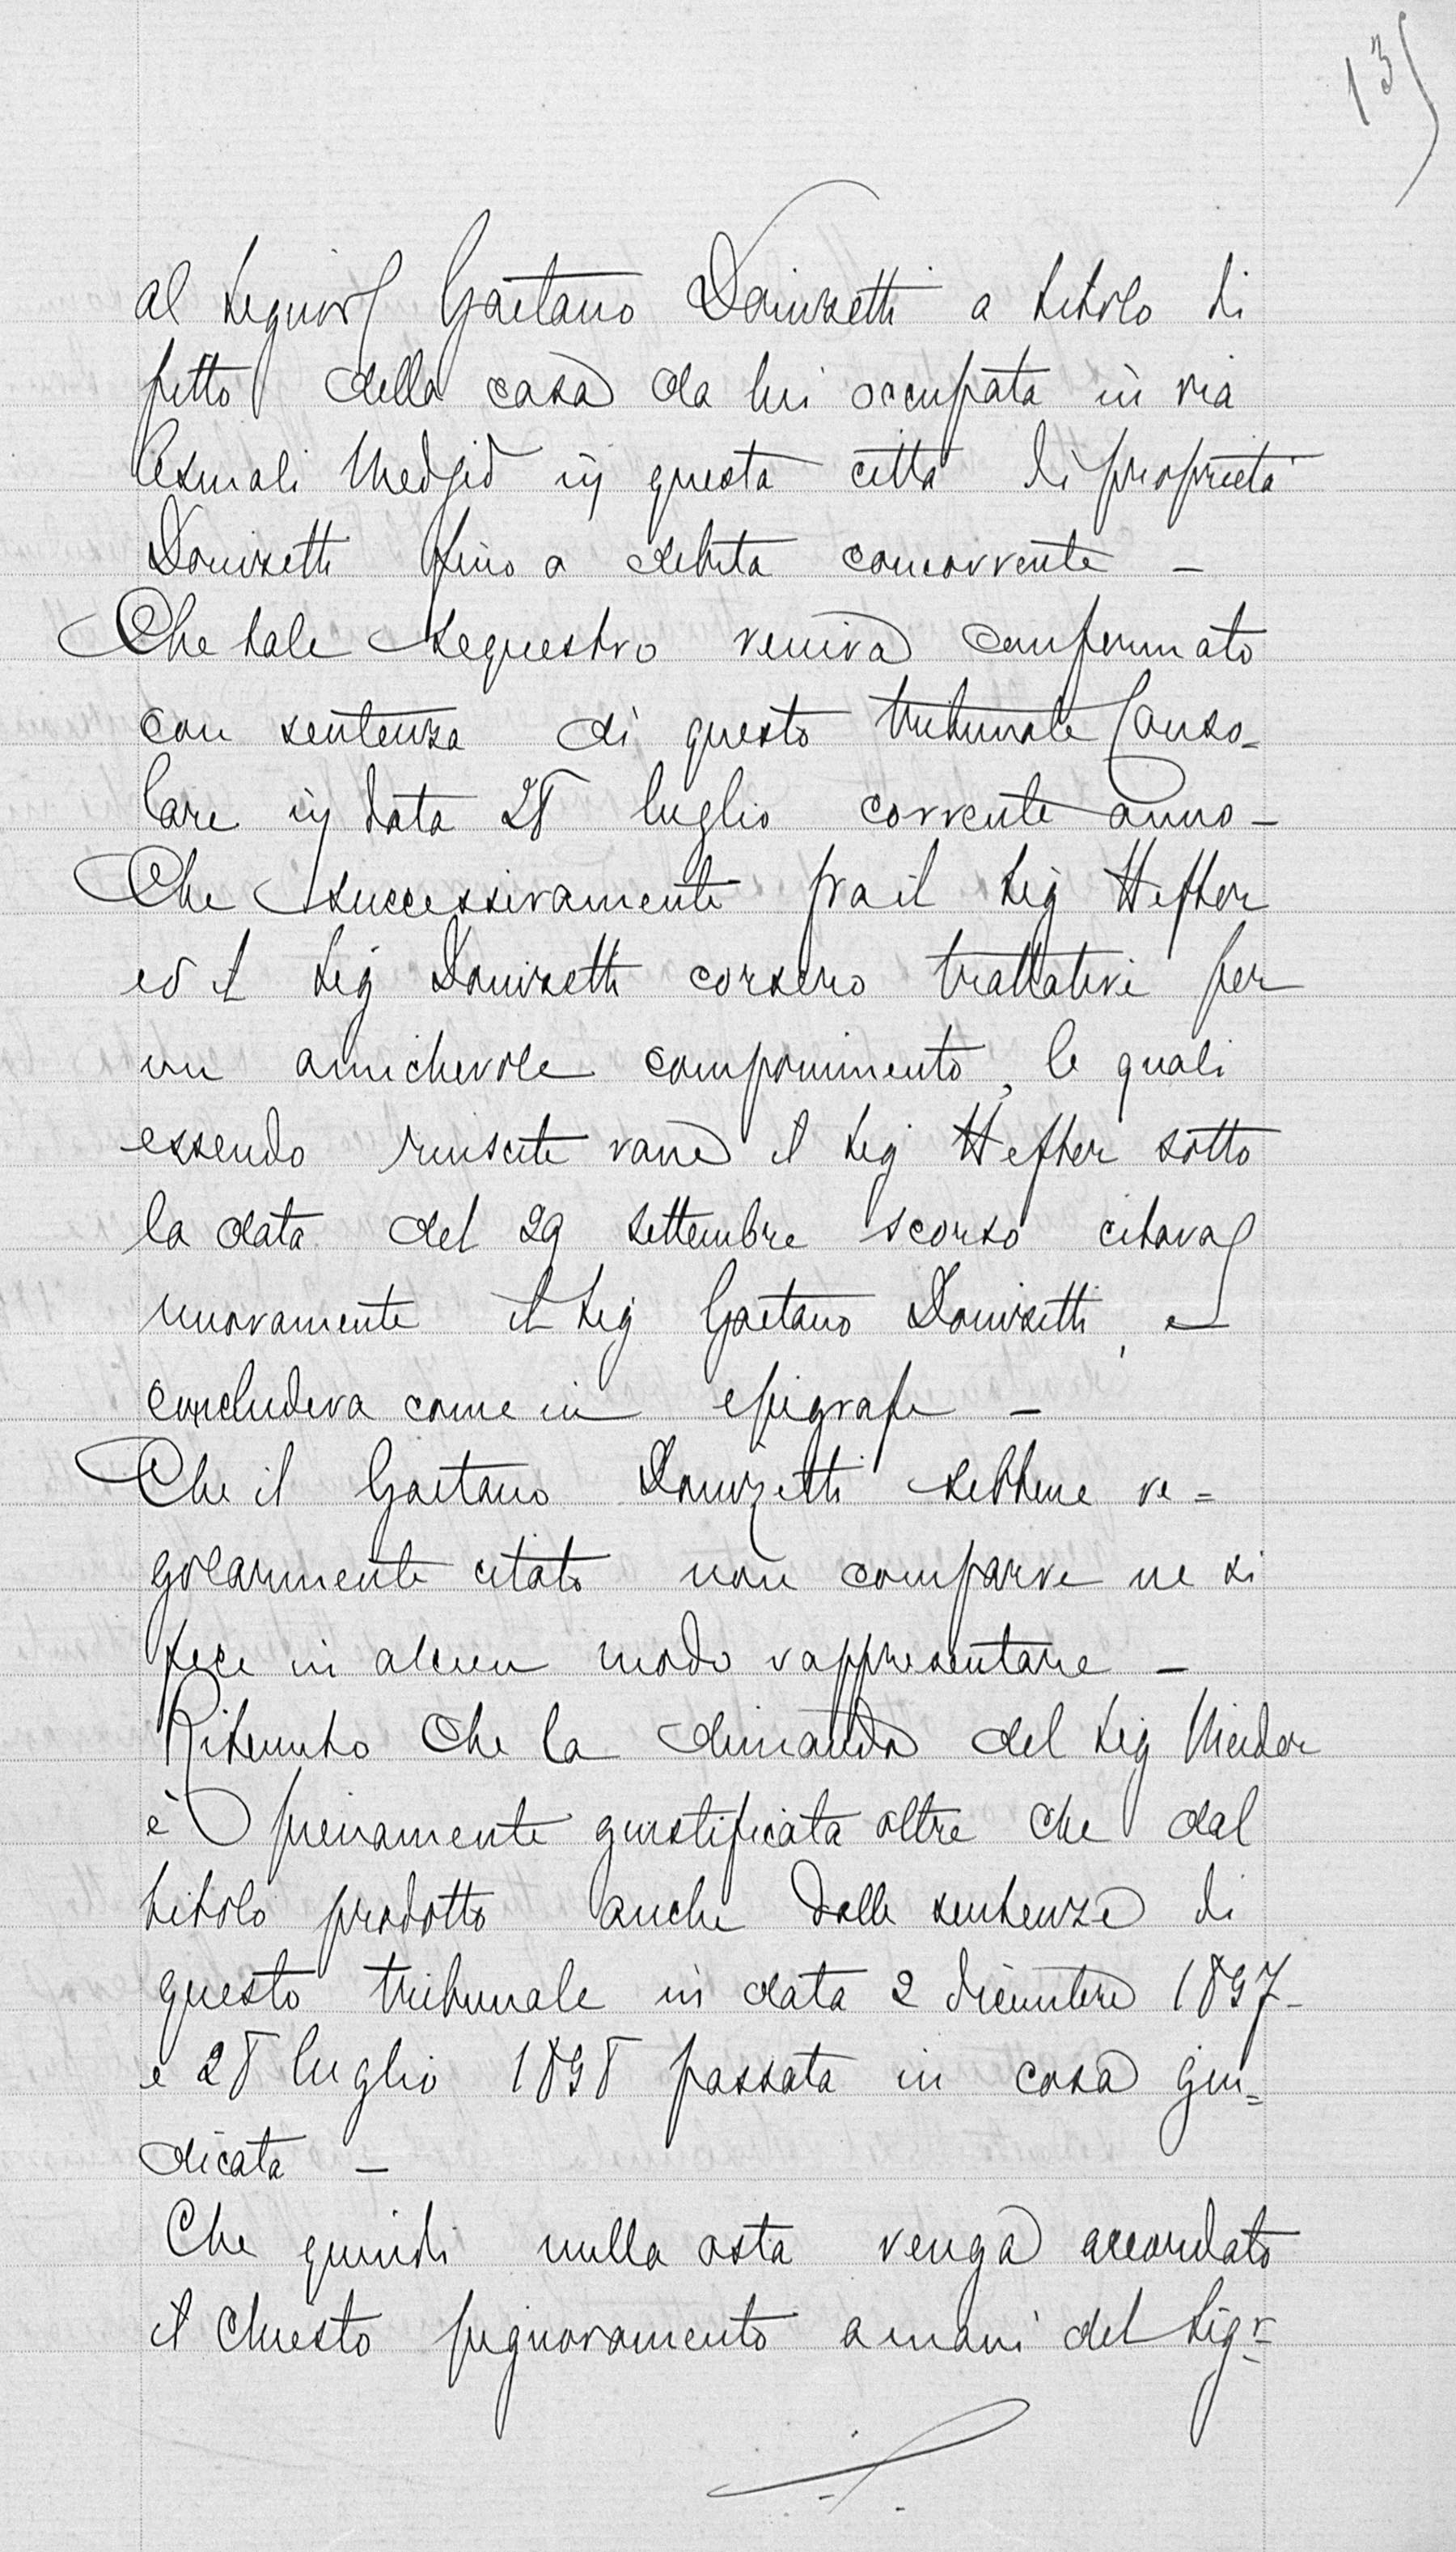 135
al Signor Gaetano Donizetti a titolo di
fitto della casa da lui occupata in via
Asmali Medjid in questa città di proprietà
Donizetti fino a debita concorrente –
Che tale sequestro veniva confermato
con sentenza di questo tribunale Conso=
lare in data 28 luglio corrente anno –
Che successivamente fra il Sig Hefter
ed il Sig Donizetti corsero trattative per
un amichevole componimento, le quali
essendo riuscite vane il Sig Hefter sotto
la data del 29 settembre scorso citava
nuovamente il Sig Gaetano Donizetti, e
concludeva come in epigrafe –
Che il Gaetano Donizetti sebbene re=
golarmente citato non comparve ne si
fece in alcun modo rappresentare –
Ritenuto che la dimanda del Sig
è pienamente giustificata oltre che dal
titolo prodotto anche dalle sentenze di
questo tribunale in data 2 dicembre 1897–
e 28 luglio 1898 passata in cosa giu=
dicata –
Che quindi nulla osta venga accordato
il chiesto pignoramento a mani del Sigr